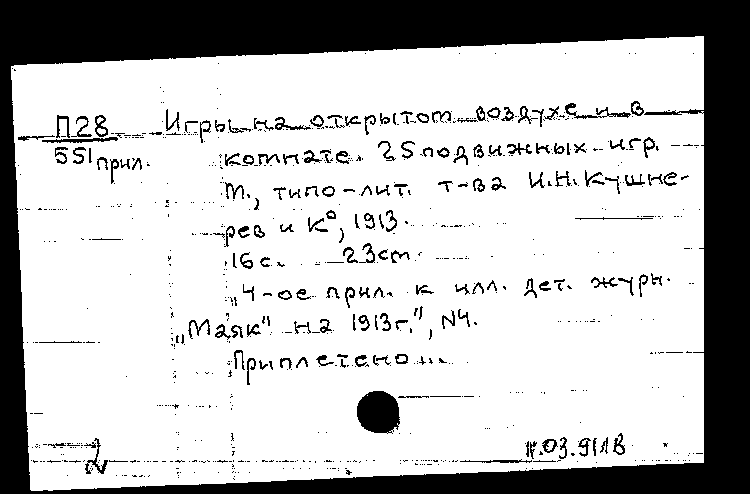 П28
551 прил.
Игры на открытом воздухе и в
комнате. 25 подвижных игр.
М., типо-лит. т-ва И.Н. Кушне-
рев и К°, 1913.
16с. 23см.
"4-ое прил. к илл. дет. журн.
"Маяк" на 1913г.", N4.
Приплетено...
2